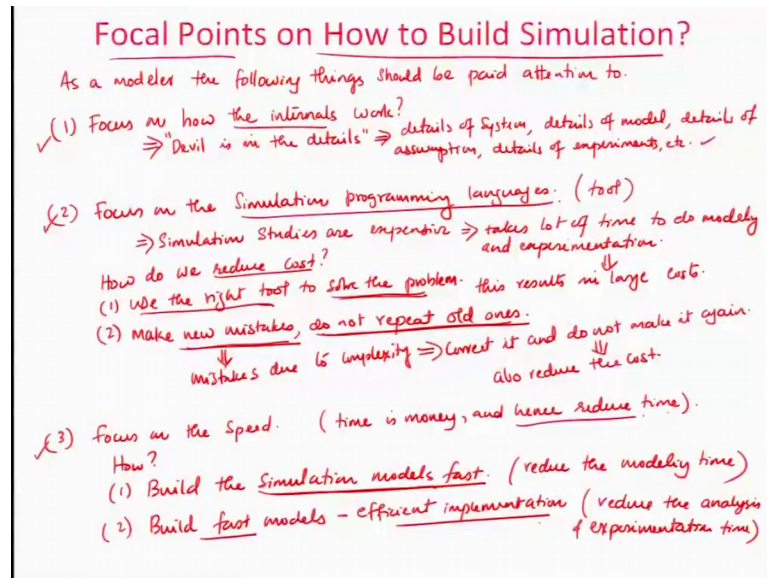 Focal Points on How to Build Simulation?
As a modeler the following things should be paid attention to.
(1) Focus on how the internals work?
⇒ "Devil is in the details" ⇒ details of system, details of model, details of
assumption, details of experiments, etc. ✓
(2) Focus on the Simulation programming languages. (tool)
⇒ Simulation Studies are expensive ⇒ takes lot of time to do modeling
and experimentation.
⇓
How do we reduce cost?
this results in large costs.
(1) Use the right tool to solve the problem.
(2) Make new mistakes, do not repeat old ones.
⇓
mistakes due to complexity ⇒ Correct it and do not make it again.
⇓
also reduce the cost.
(3) Focus on the Speed. (time is money, and hence reduce time).
How?
(1) Build the Simulation models fast. (reduce the modeling time)
(2) Build fast models - efficient implementation (reduce the analysis
& experimentation time)